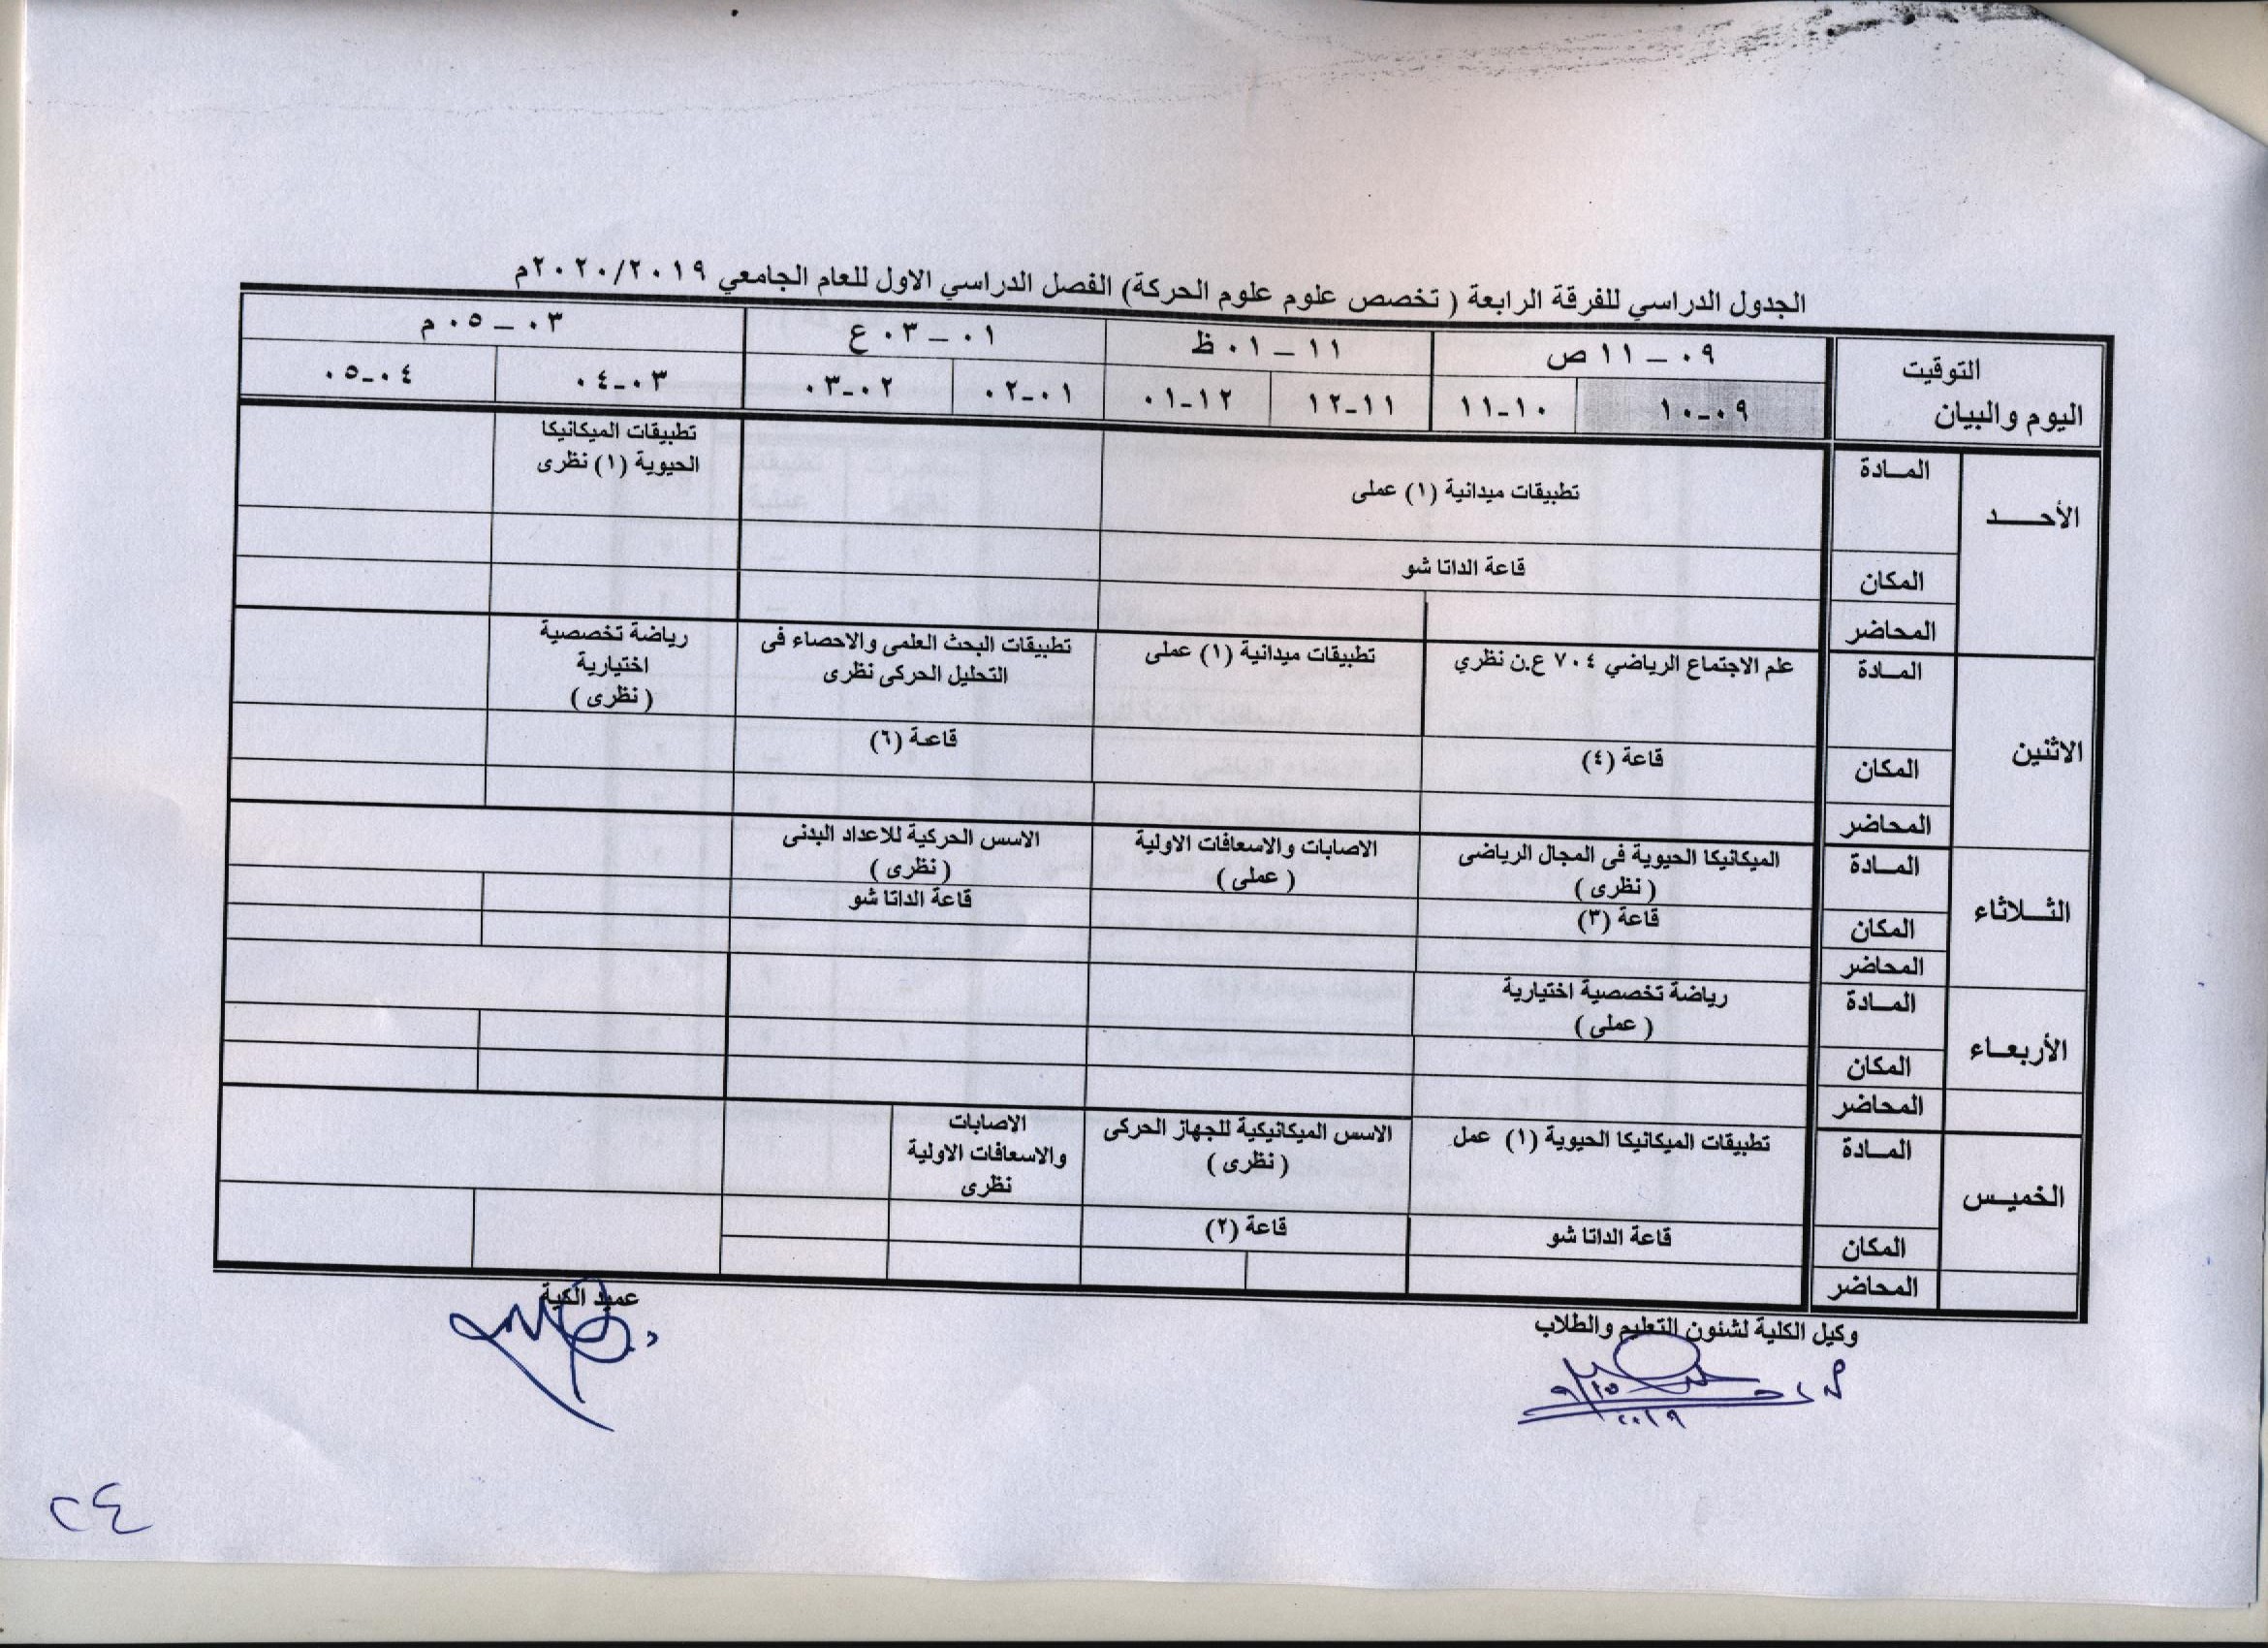 الجدول الدراسي للفرقة الرابعة ( تخصص علوم علوم الحركة) الفصل الدراسي الاول للعام الجامعي ٢٠٢٠/٢٠١٩م
التوقيت
اليوم والبيان
٠٩ – ١١ ص
١١ – ٠١ ظ
٠١ – ٠٣ ع
٠٣ – ٠٥ م
٠٩-١٠
١٠-١١
١١-١٢
١٢-٠١
٠١-٠٢
٠٢-٠٣
٠٣-٠٤
٠٤-٠٥
الأحـــد
المــادة
تطبيقات ميدانية (١) عملى
تطبيقات الميكانيكا
الحيوية (١) نظرى
المكان
قاعة الداتا شو
المحاضر
الاثنين
المــادة
علم الاجتماع الرياضي ٧٠٤ ع.ن نظري
تطبيقات ميدانية (١) عملى
تطبيقات البحث العلمى والاحصاء فى
التحليل الحركى نظرى
رياضة تخصصية
اختيارية
( نظرى )
المكان
قاعة (٤)
قاعة (٦)
المحاضر
الثـلاثاء
المــادة
الميكانيكا الحيوية فى المجال الرياضى
( نظرى )
الاصابات والاسعافات الاولية
( عملى )
الاسس الحركية للاعداد البدنى
( نظرى )
المكان
قاعة (٣)
قاعة الداتا شو
المحاضر
الأربعـاء
المــادة
رياضة تخصصية اختيارية
( عملى )
المكان
المحاضر
الخميـس
المــادة
تطبيقات الميكانيكا الحيوية (١) عمل
الاسس الميكانيكية للجهاز الحركى
( نظرى )
الاصابات
والاسعافات الاولية
نظرى
المكان
قاعة الداتا شو
قاعة (٢)
المحاضر
وكيل الكلية لشئون التعليم والطلاب
عميد الكية
٢٠١٩
٢٤